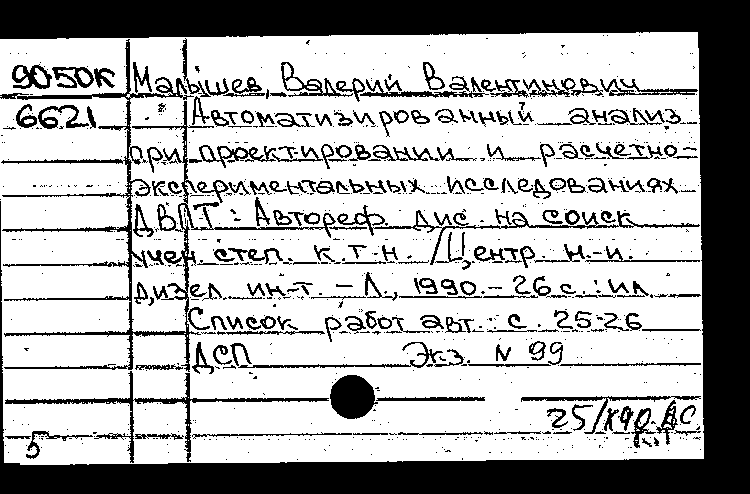 9050К Малышев, Валерий Валентинович
6621 Автоматизированный анализ
при проектировании и расчетно-
экспериментальных исследованиях
ДВПТ: Автореф. дис. на соиск
учен. степ. к.т.н. /Центр. н.-и.
дизел. ин-т. – Л., 1990. – 26 с. : ил
Список работ авт.: с. 25-26
ДСП Экз. N 99
25/X90 ДС
5